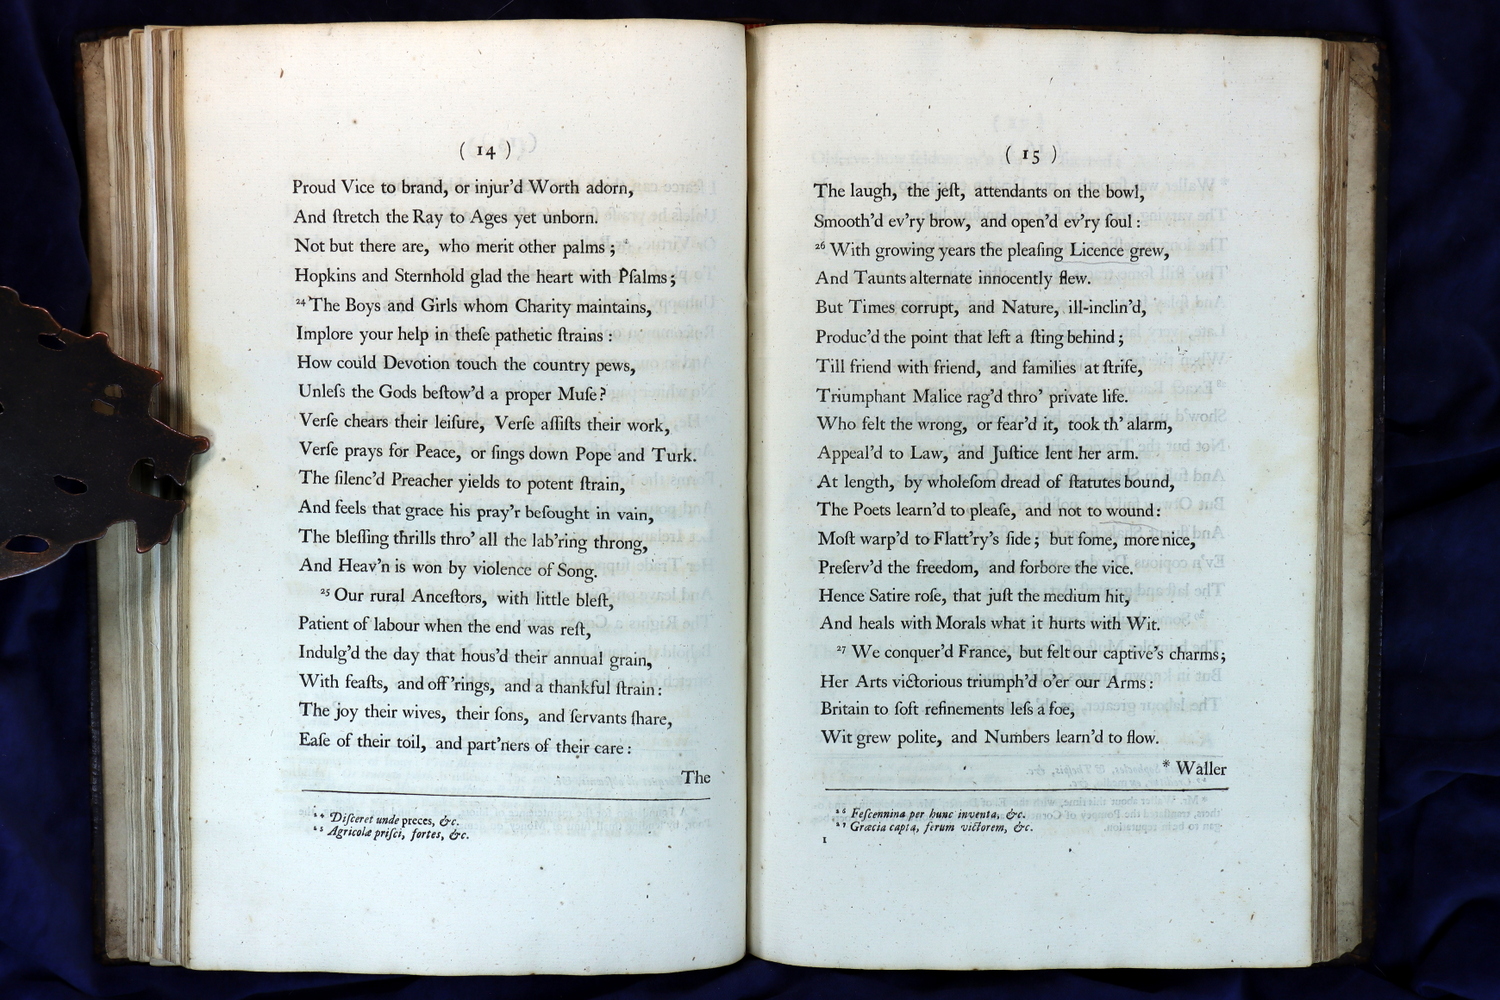 ( 14 )
Proud Vice to brand, or injur'd Worth adorn,
And ſtretch the Ray to Ages yet unborn.
Not but there are, who merit other palms ;
Hopkins and Sternhold glad the heart with Pſalms ;
²⁴ The Boys and Girls whom Charity maintains,
Implore your help in theſe pathetic ſtrains :
How could Devotion touch the country pews,
Unleſs the Gods beſtow'd a proper Muſe ?
Verſe chears their leiſure, Verſe aſſiſts their work,
Verſe prays for Peace, or ſings down Pope and Turk.
The ſilenc'd Preacher yields to potent ſtrain,
And feels that grace his pray'r beſought in vain,
The bleſſing thrills thro' all the lab'ring throng,
And Heav'n is won by violence of Song.
²⁵ Our rural Anceſtors, with little bleſt,
Patient of labour when the end was reſt,
Indulg'd the day that hous'd their annual grain,
With feaſts, and off'rings, and a thankful ſtrain :
The joy their wives, their ſons, and ſervants ſhare,
Eaſe of their toil, and part'ners of their care :
The
²⁴ Diſceret unde preces, &c.
²⁵ Agricolæ priſci, fortes, &c.
( 15 )
The laugh, the jeſt, attendants on the bowl,
Smooth'd ev'ry brow, and open'd ev'ry ſoul :
²⁶ With growing years the pleaſing Licence grew,
And Taunts alternate innocently flew.
But Times corrupt, and Nature, ill-inclin'd,
Produc'd the point that left a ſting behind ;
Till friend with friend, and families at ſtrife,
Triumphant Malice rag'd thro' private life.
Who felt the wrong, or fear'd it, took th' alarm,
Appeal'd to Law, and Juſtice lent her arm.
At length, by wholeſom dread of ſtatutes bound,
The Poets learn'd to pleaſe, and not to wound :
Moſt warp'd to Flatt'ry's ſide ; but ſome, more nice,
Preſerv'd the freedom, and forbore the vice.
Hence Satire roſe, that juſt the medium hit,
And heals with Morals what it hurts with Wit.
²⁷ We conquer'd France, but felt our captive's charms ;
Her Arts victorious triumph'd o'er our Arms :
Britain to ſoft refinements leſs a foe,
Wit grew polite, and Numbers learn'd to flow.
* Waller
²⁶ Feſcennina per hunc inventa, &c.
²⁷ Græcia capta, ferum victorem, &c.
1